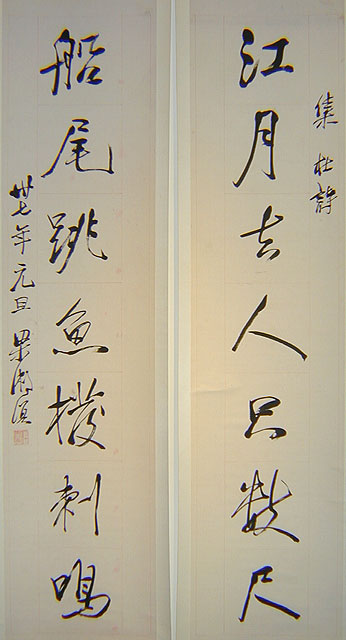 集杜詩
江月去人只數尺
船尾跳魚撥剌鳴
卅七年元旦 梁漱溟